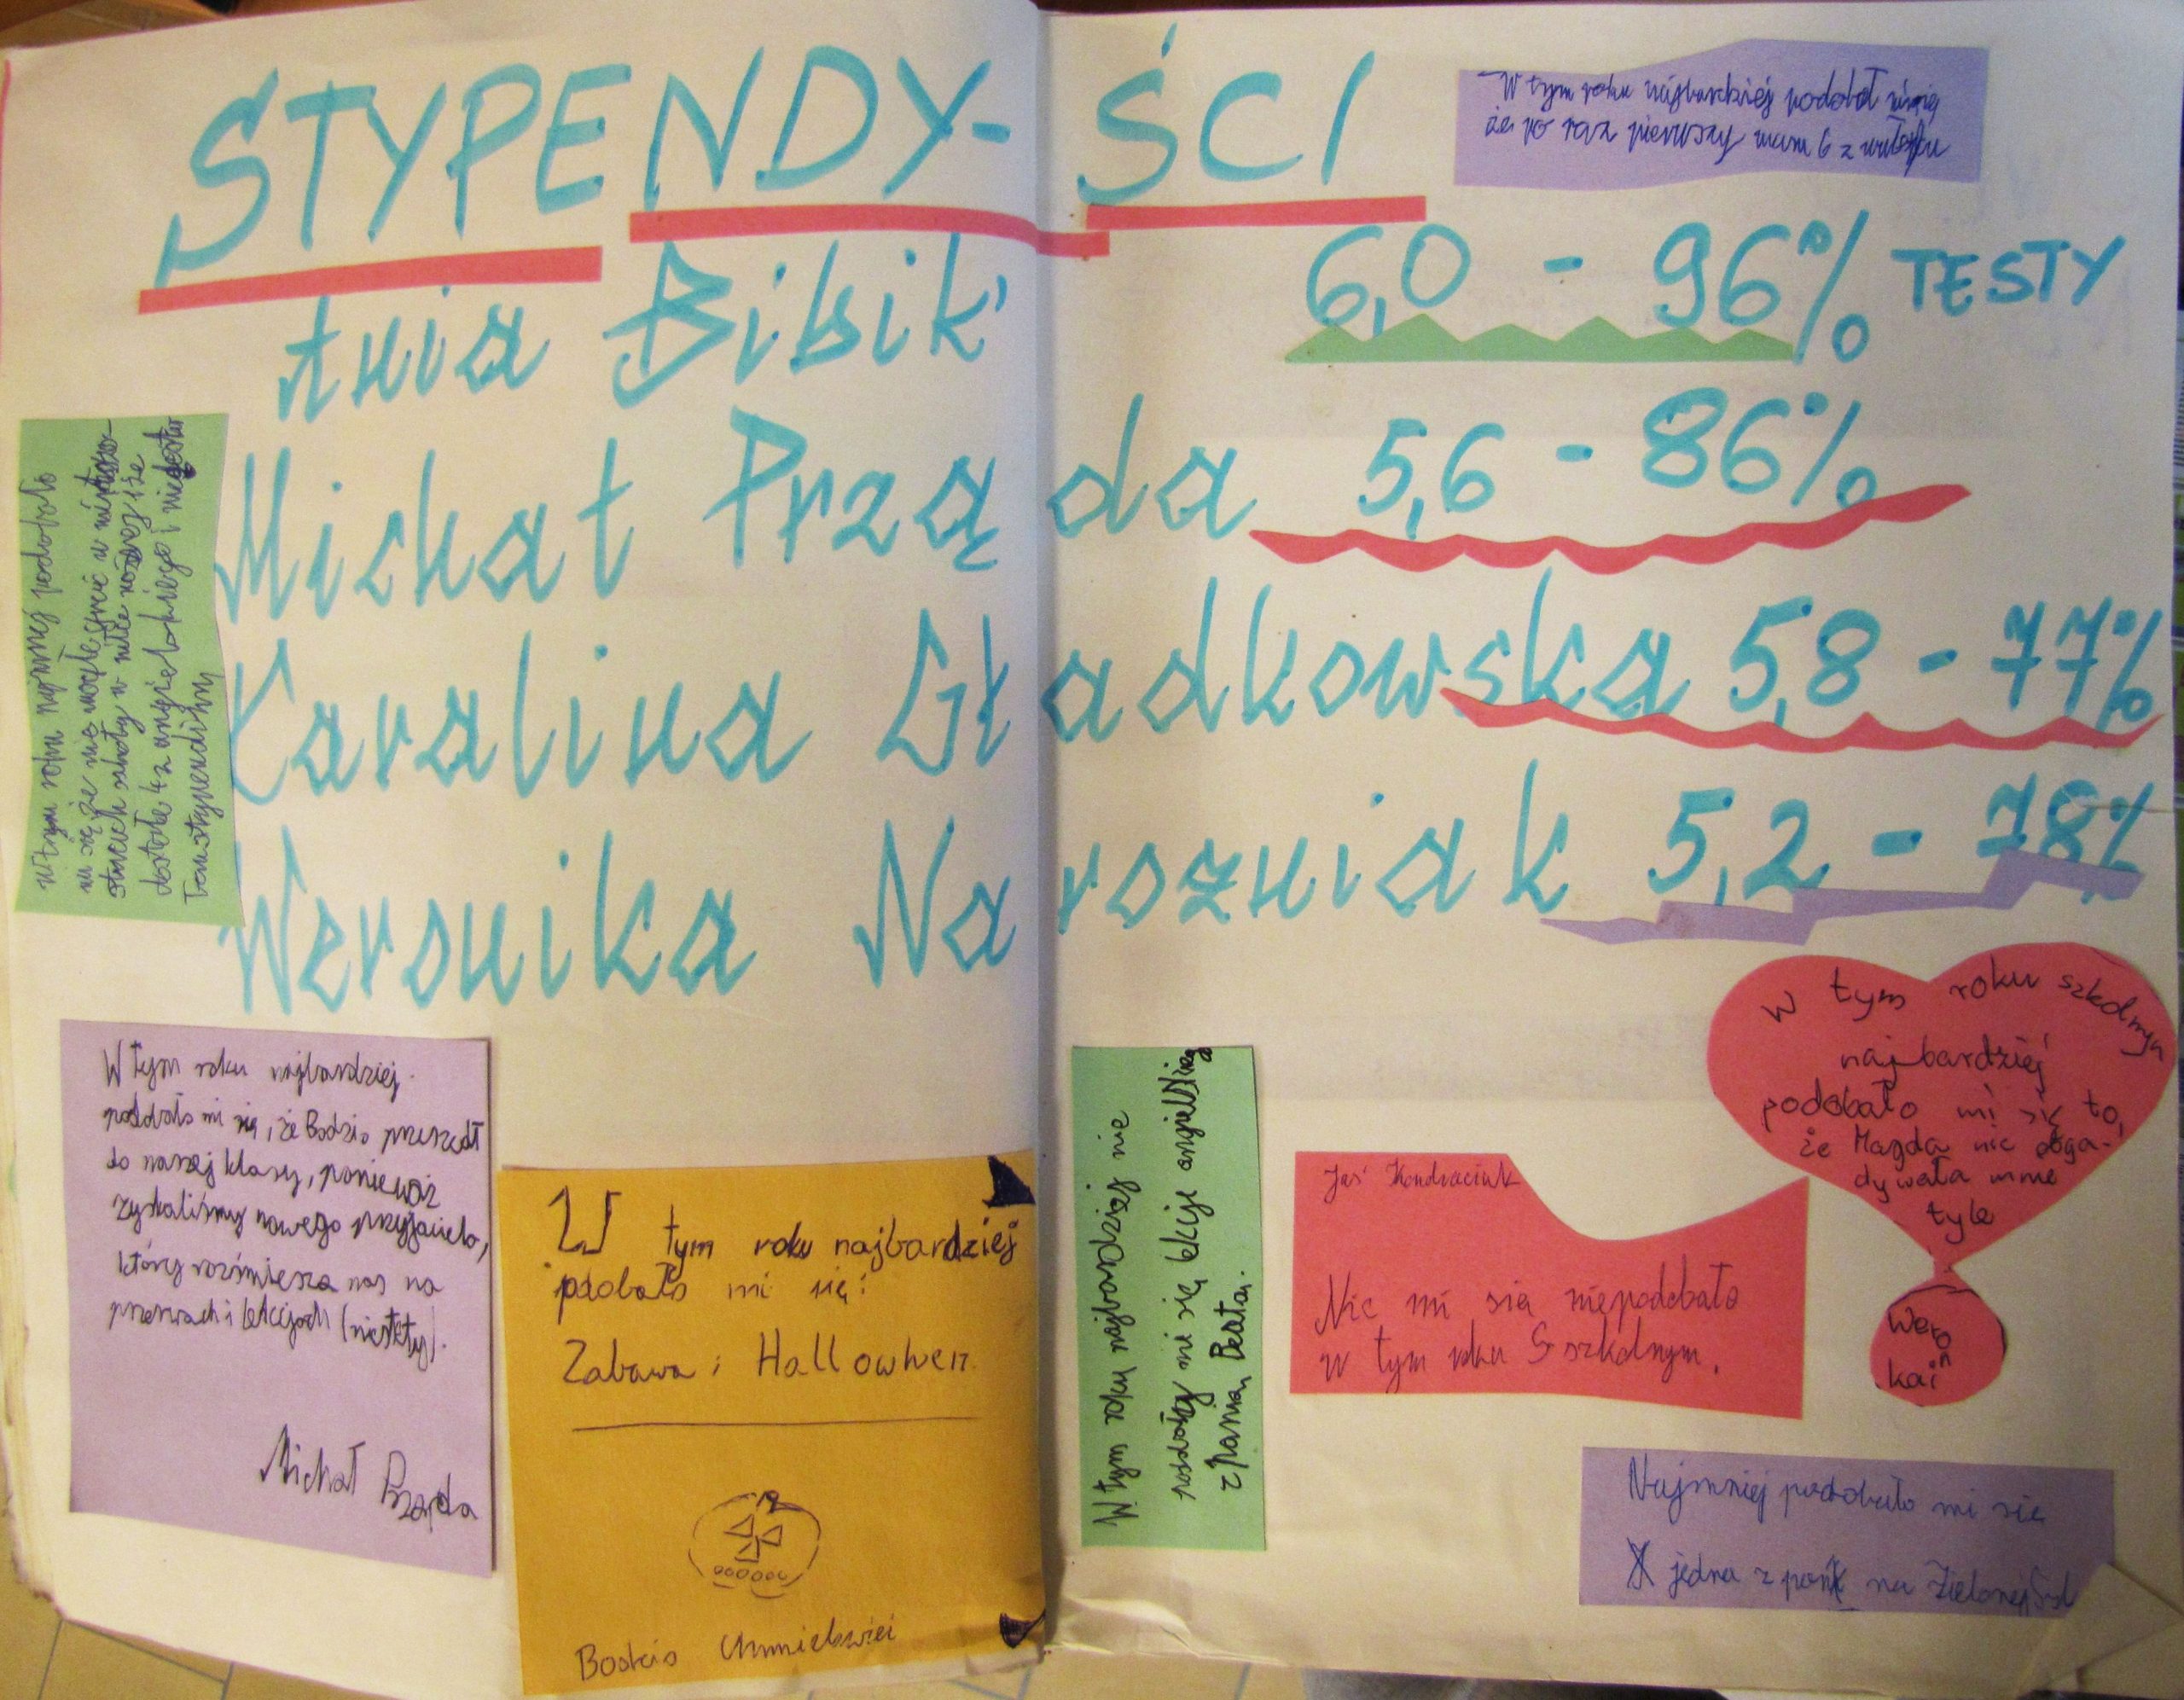 STYPENDY-ŚCI
Ania Bibik 6,0 - 96% TESTY
Michał Prząda 5,6 - 86%
Karolina Gładkowska 5,8 - 77%
Weronika Narozniak 5,2 - 78%
W tym roku najbardziej podobał mi się
że po raz pierwszy mam 6 z
W tym roku najmniej podobało
mi się że nie mogłe
szkoły w
dostałe 4 z angielskiego i nie
W tym roku najbardziej
podobało mi się, że Bodzio przeszedł
do naszej klasy, ponieważ
zyskaliśmy nowego przyjaciela,
który rozśmiesza nas na
przerwach i lekcjach (niestety).
Michał Prząda
W tym roku najbardziej
podobało mi się:
Zabawa i Hallowwen
W tym roku najbardziej mie
mi się lekcje
z Panią Beatą.
Jaś Kondraciuk
Nic mi sia niepodobało
w tym roku szkolnym.
W tym roku szkolnym
najbardziej
podobało mi się to,
że Magda nie obga-
dywała mnie
tyle
Wero
n
kai
Najmniej podobało mi sie
jedna z pań na Zielonej